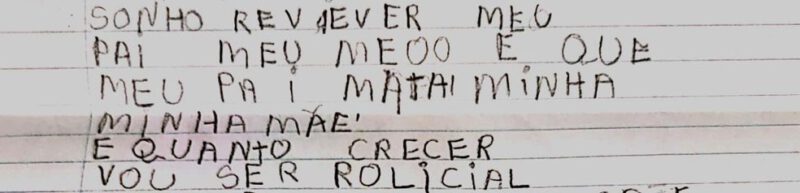 SONHO REVIEVER MEU
PAI MEU MEDO E QUE
MEU PAI MATAI MINHA
MINHA MÃE
E QUANTO CRECER
VOU SER ROLICIAL